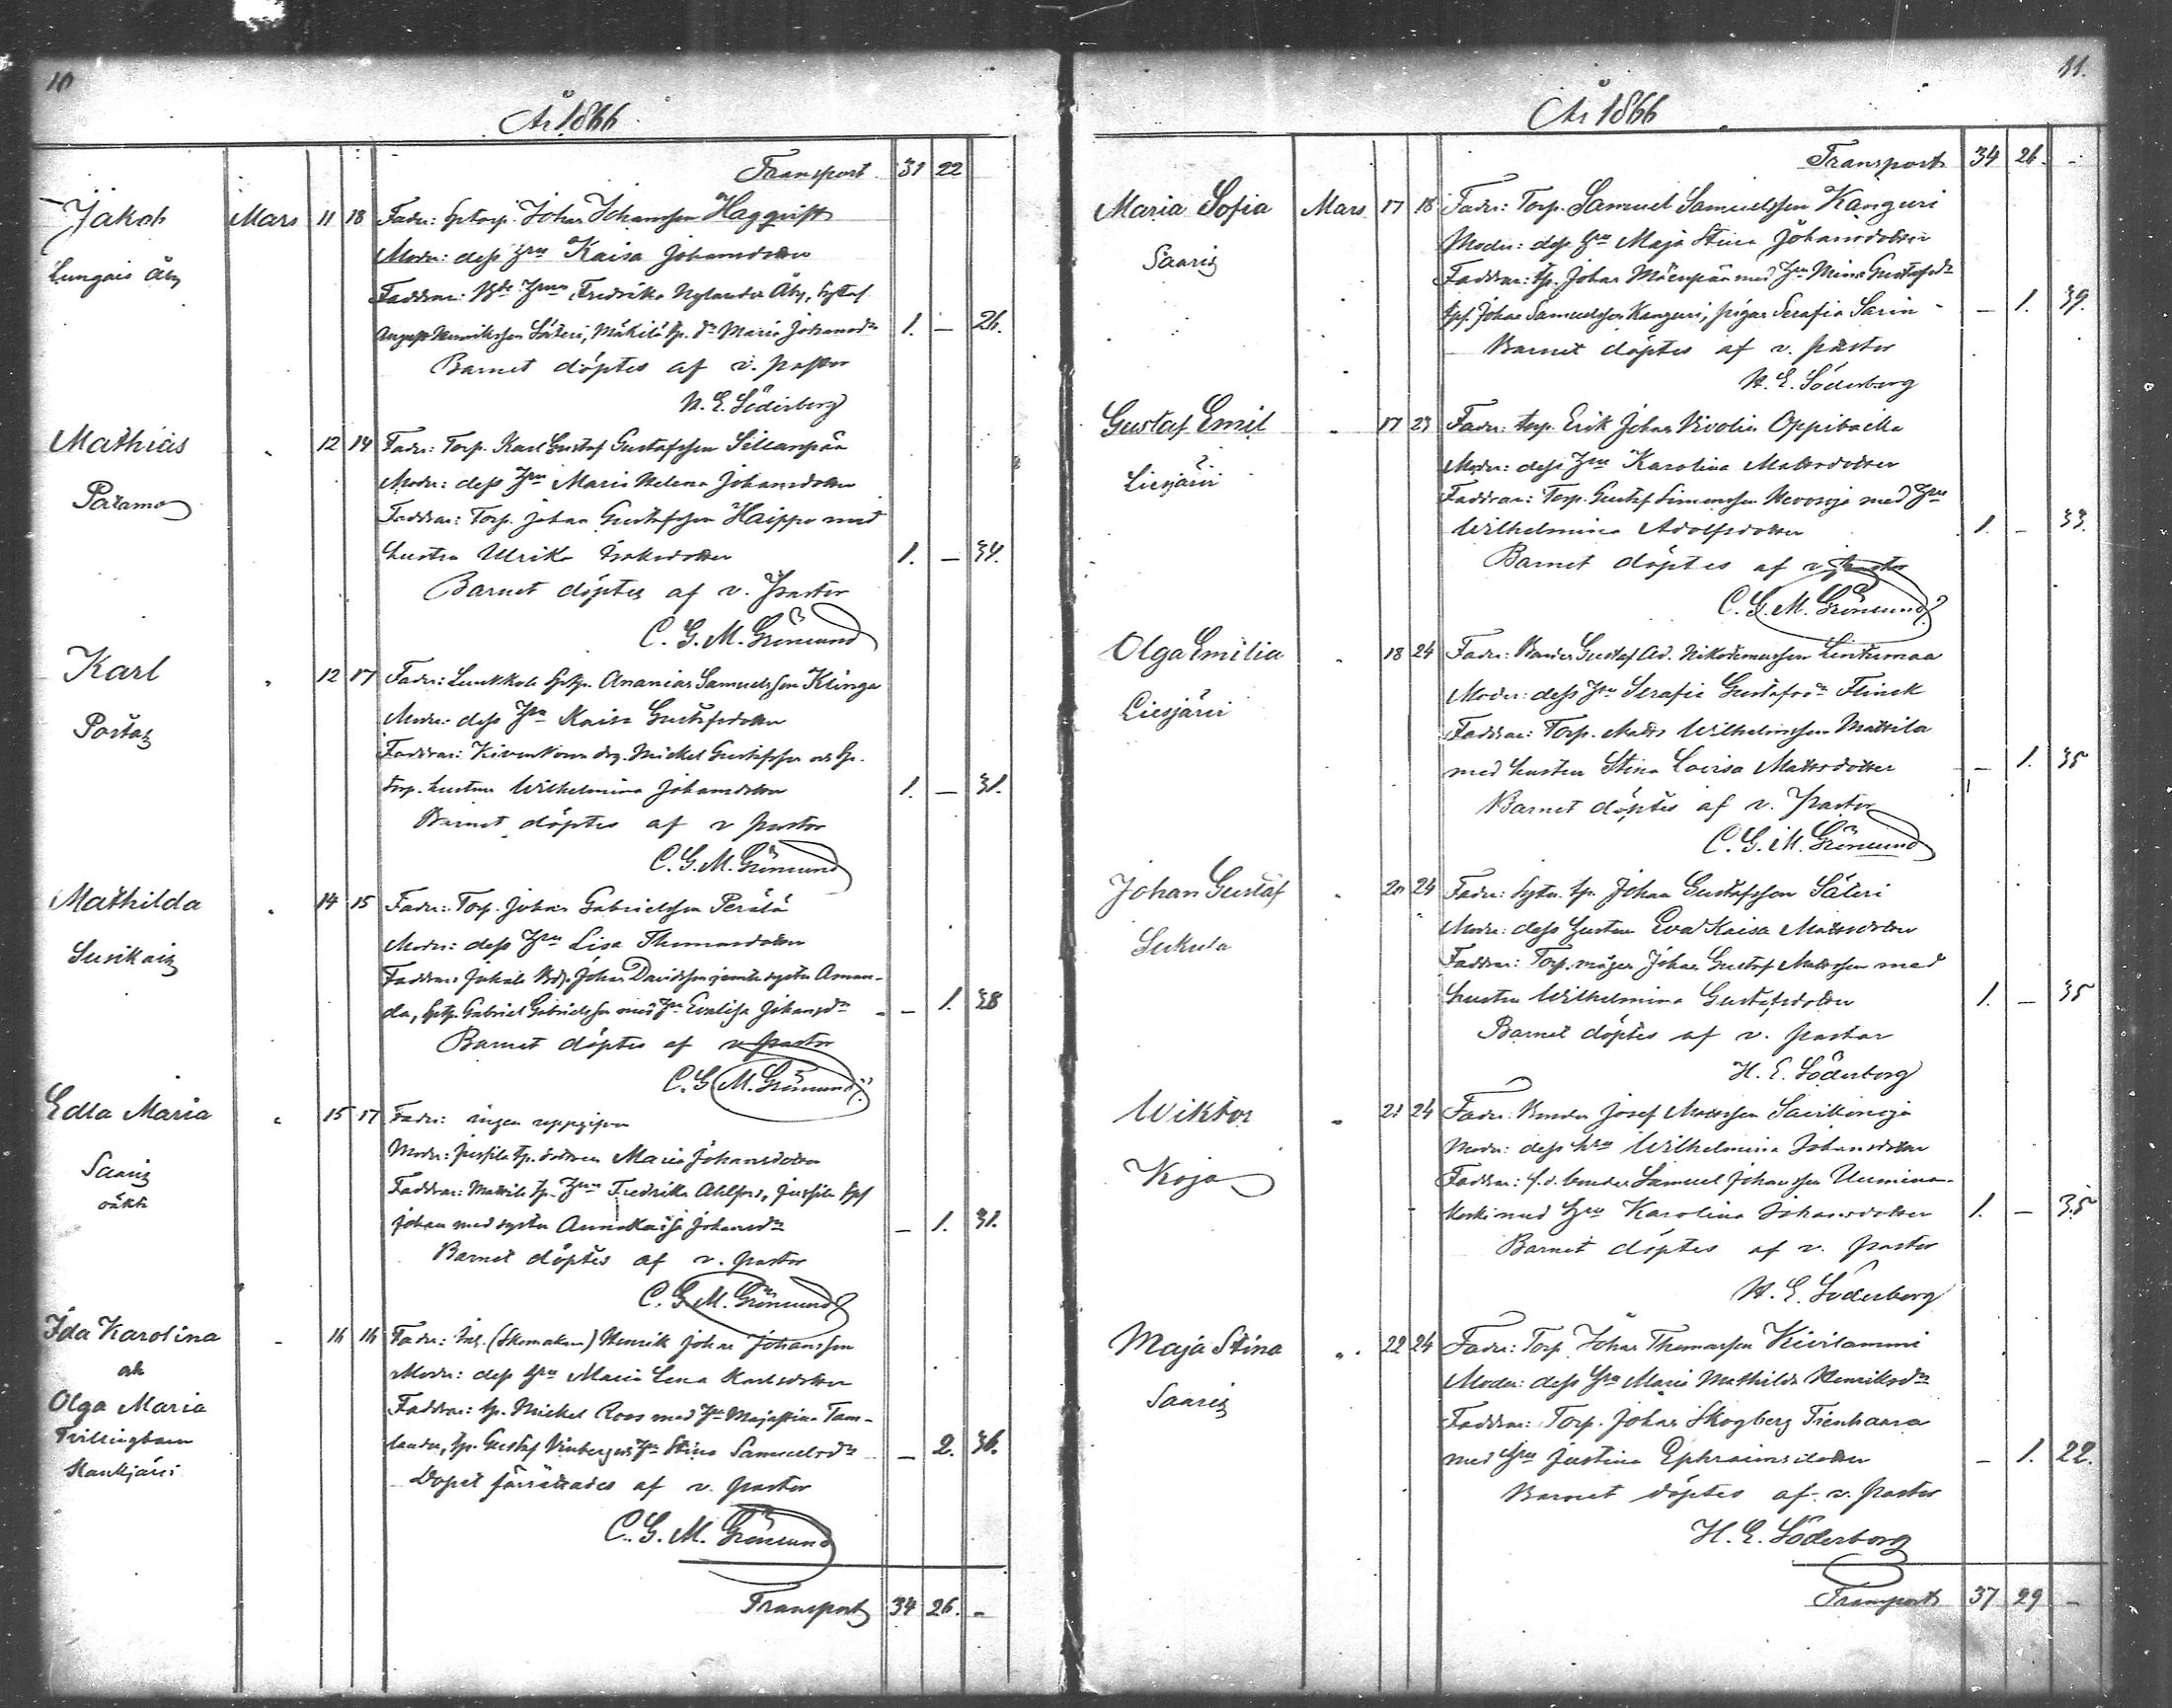 10
År 1866
Transport 31 22
Jakob Mars 11 18 Fader: Johan Johansson Haggqvist
Moder: dess Hru Kaisa Johansdotter
Lungais Åby
Faddrar: Fredrika Nylander Åby,
August Henriksson Säteri, Mäkilä tp. dr Maria Johansdr 1. — 26.
Barnet döptes af v. pastor
H. E. Söderberg
Mathias " 12 14 Fader: Torp. Karl Gustaf Gustafsson Sillanpää
Moder: dess Hru Maria Helena Johansdotter
Patamo
Faddrar: Torp. Johan Gustafsson Haippo med
hustru Ulrika Isaksdotter 1. — 34.
Barnet döptes af v. Pastor
C. G. M. Grönlund
Karl " 12 17 Fader: Ananias Samuelsson Klinga
Moder: dess Hru Kaisa Gustafsdotter
Portas
Faddrar: Mickel Gustafsson
torp. hustru Wilhelmina Johansdotter 1. — 31.
Barnet döptes af v pastor
C. G. M. Grönlund
Mathilda " 14 15 Fader: Torp. Johan Gabrielsson Perälä
Moder: dess Hru Lisa Thomasdotter
Susikais
Faddrar: Johan Davidsson jemte syster Aman-
da, Gabriel Gabrielsson med Hru Evalisa Johansdr — 1. 38
Barnet döptes af v pastor
C. G. M. Grönlund
Edla Maria " 15 17 Fader: ingen uppgifven
Moder: tp. dottren Maria Johansdotter
Saaris
oäkta
Faddrar: Mattila tp. Hru Fredrika Ahlfors,
Johan med syster Anna Kaisa Johansdr — 1. 31.
Barnet döptes af v. pastor
C. G. M. Grönlund
Ida Karolina - 16 16 Fader: Inh. (Skomakare) Henrik Johan Johansson
och
Moder: dess Hru Maria Lena Karlsdotter
Olga Maria
Faddrar: tp. Mickel Roos med Hru Majastina Tam-
Tvillingbarn
lander, tp. Gustaf Hru Stina Samuelsdr — 2. 36.
Kaukjärvi
Dopet förrättades af v. pastor
C. G. M. Grönlund
Transport 34 26. -
11.
År 1866
Transport 34 26. -
Maria Sofia Mars 17 18 Fader: Torp. Samuel Samuelsson Känguri
Moder: dess Hru Maja Stina Johansdotter
Saaris
Faddrar: tp. Johan Mäenpää med Hru Mina Gustafsdr
Johan Samuelsson Kanguri, pigan Serafia Sarin — 1. 39.
Barnet döptes af v. pastor
H. E. Söderberg
Gustaf Emil " 17 23 Fader: torp. Erik Johan Oppibacka
Moder: dess Hru Karolina Mattsdotter
Liesjärvi
Faddrar: Torp. Gustaf Simonsson med Hru
Wilhelmina Adolfsdotter 1. — 33.
Barnet döptes af v pastor
C. G. M. Grönlund
Olga Emilia " 18 24 Fader: Bonden Gustaf Ad. Nikodemusson Lintumaa
Moder: dess Hru Serafia Gustafsdr Flinck
Liesjärvi
Faddrar: Torp. Matts Wilhelmsson Mattila
med hustru Stina Lovisa Mattsdotter — 1. 35
Barnet döptes af v. Pastor
C. G. M. Grönlund
Johan Gustaf " 20 24 Fader: tp. Johan Gustafsson Säteri
Moder: dess hustru Eva Kaisa Mattsdotter
Sukula
Faddrar: Torp. mågen Johan Gustaf Mattsson med
hustru Wilhelmina Gustafsdotter 1. — 35
Barnet döptes af v. pastor
H. E. Söderberg
Wiktor " 21 24 Fader: Bonden Josef Mattsson
Moder: dess hru Wilhelmina Johansdotter
Kojo
Faddrar: f.d. bonden Samuel Johansson
med Hru Karolina Johansdotter 1. — 35
Barnet döptes af v. pastor
H. E. Söderberg
Maja Stina " 22 24 Fader: Torp Johan Thomasson Kivilammi
Moder: dess Hru Maria Mathilda Henriksdr
Saaris
Faddrar: Torp. Johan Skogberg Tienhaara
med Hru Justina Ephraimsdotter — 1. 22.
Barnet döptes af v. pastor
H. E. Söderberg
Transport 37 29 -